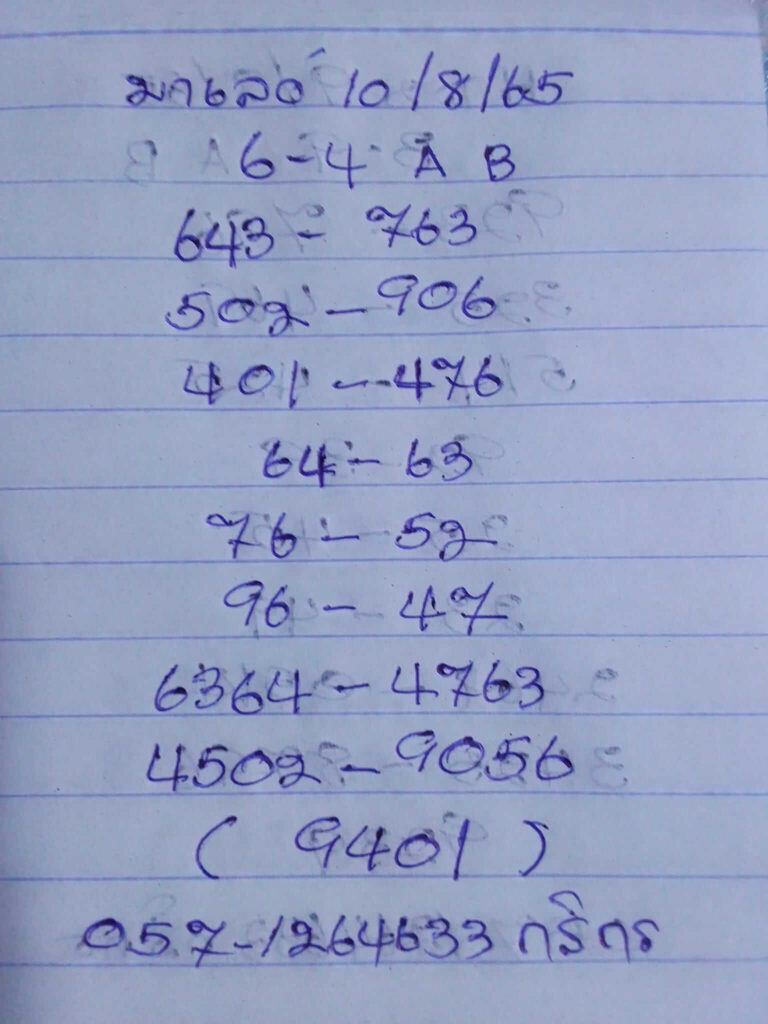 มาเลย์ 10/8/65
6-4 A B
643 - 763
502 - 906
401 - 476
64 - 63
76 - 52
96 - 47
6364 - 4763
4502 - 9056
( 9401 )
057-1264633 กสิกร